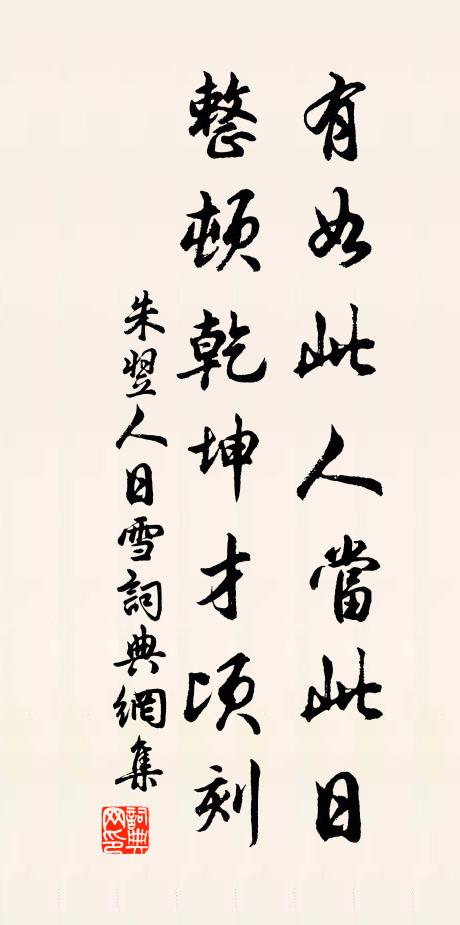 有如此人當此日
整頓乾坤才頃刻
朱翌人日雪詞典網集
詞典網印